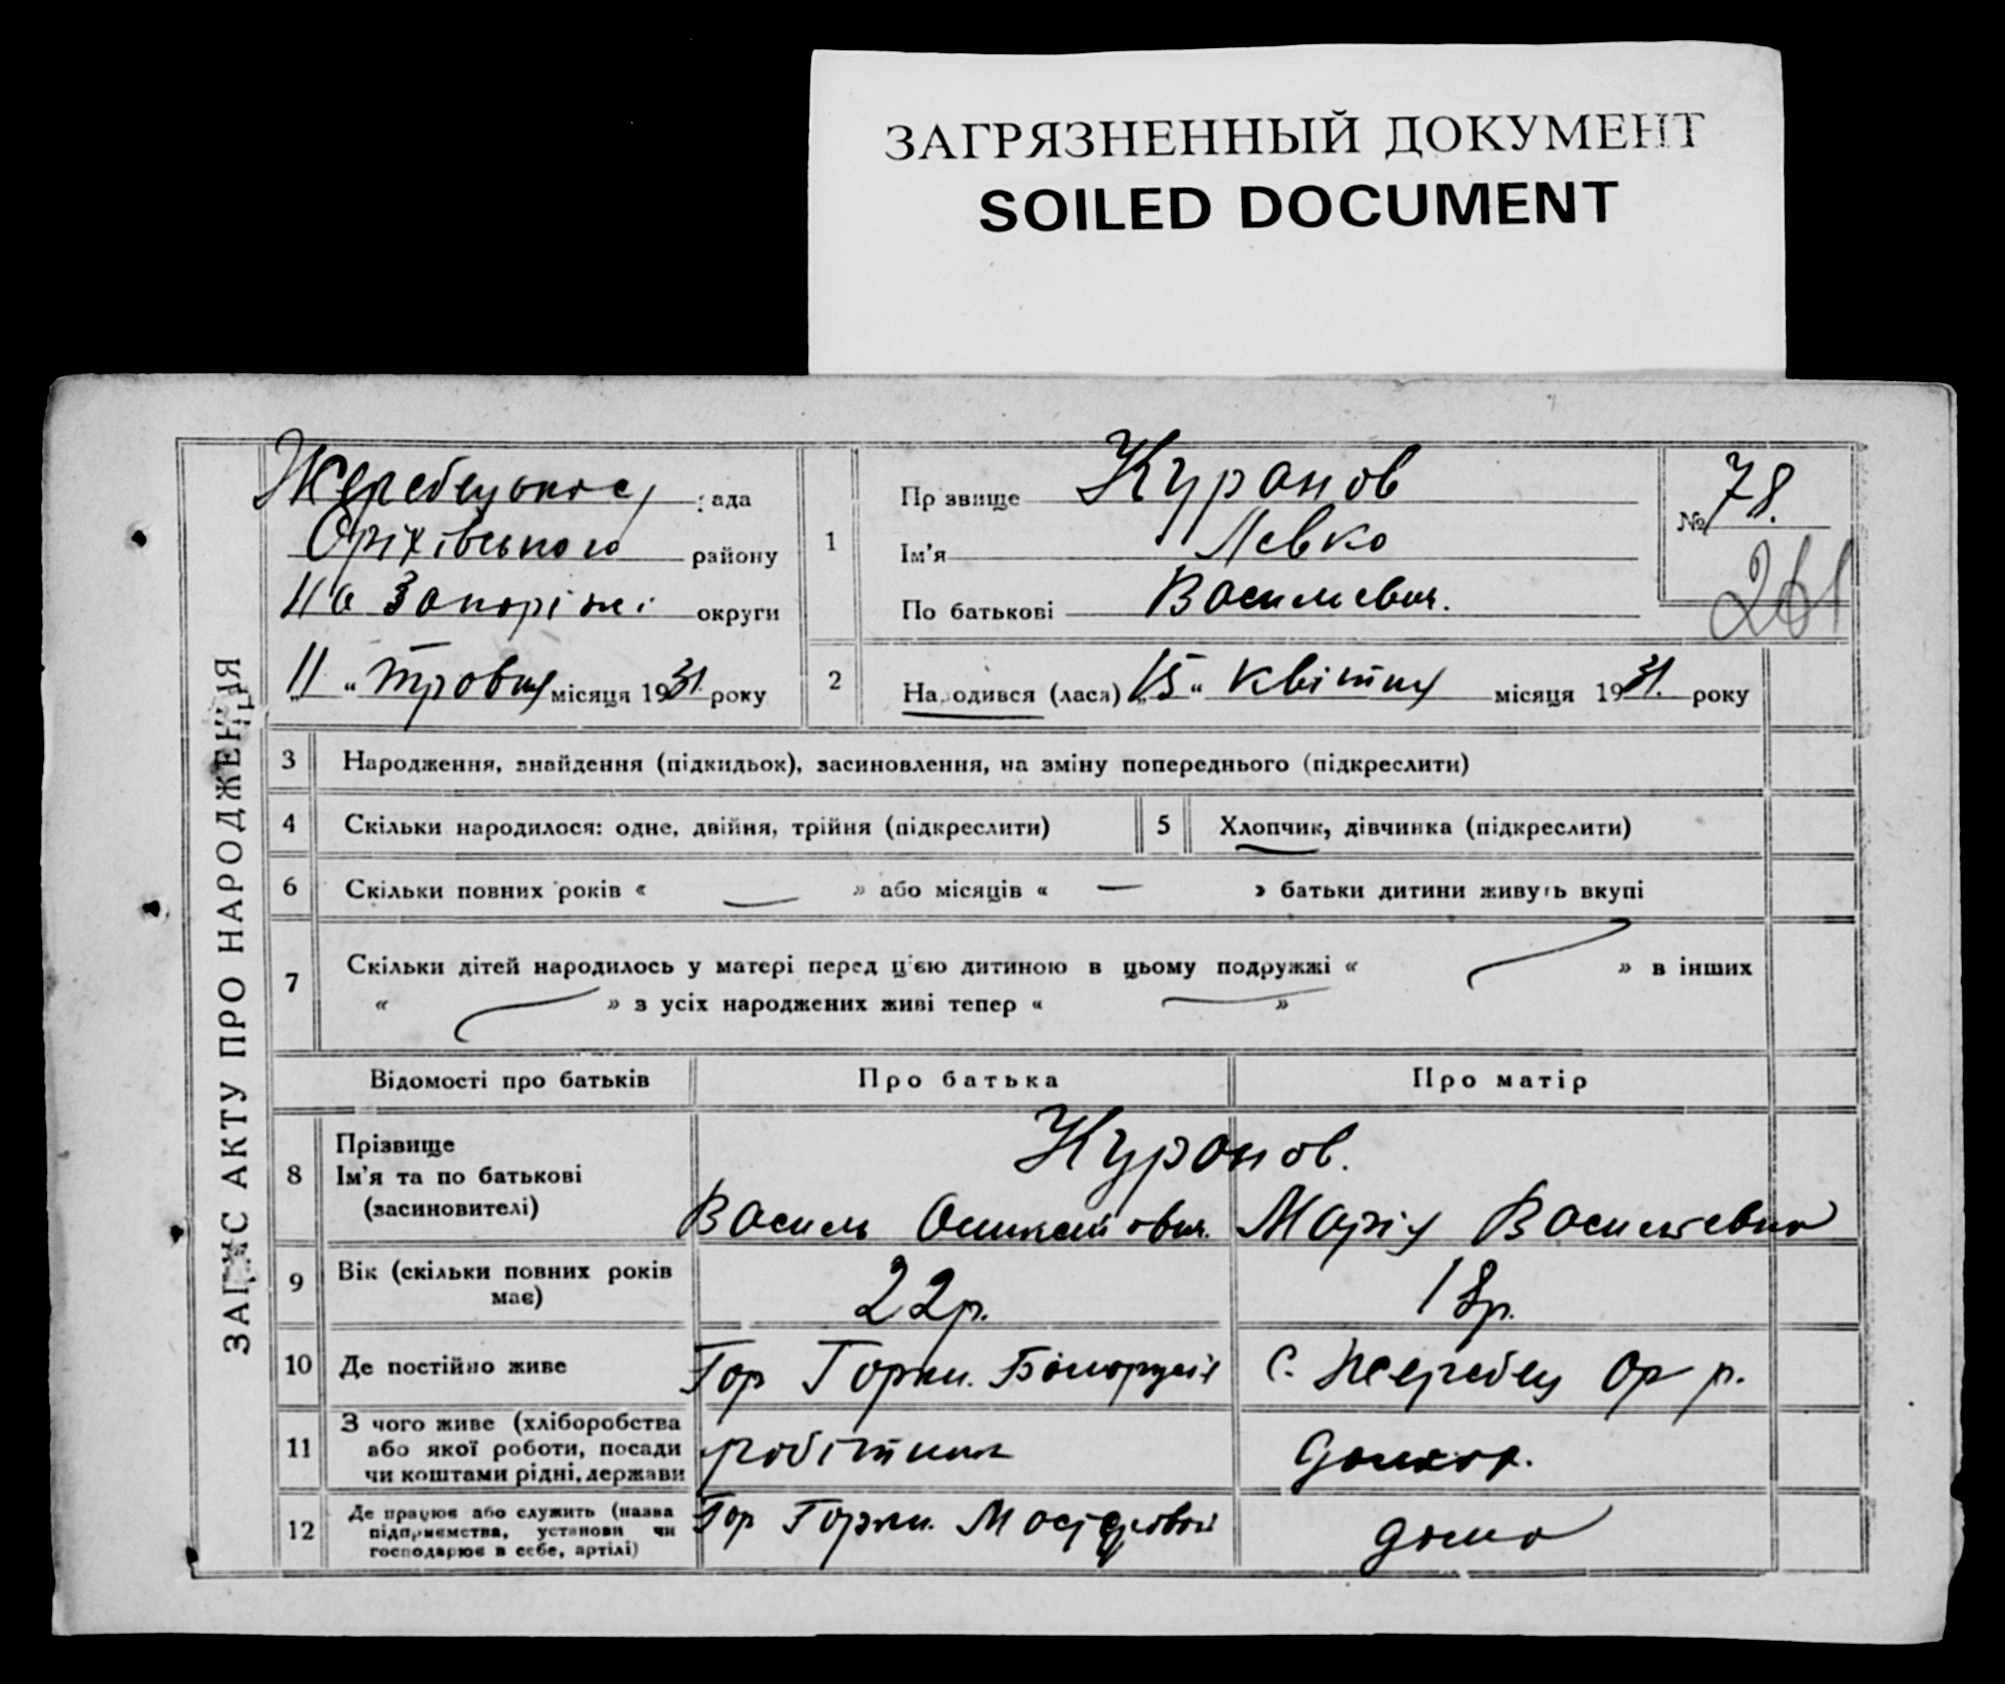 ЗАГРЯЗНЕННЫЙ ДОКУМЕНТ
SOILED DOCUMENT
ЗАПИС АКТУ ПРО НАРОДЖЕННЯ
Жеребецької рада
Оріхівського району
На Запоріжжі округи
11 „ травня місяця 1931 року
1
Прізвище Куранов
Ім'я Левко
По батькові Васильевич.
№ 78.
261
2 Народився (лася) „15“ квітня місяця 1931. року
3 Народження, знайдення (підкидьок), засиновлення, на зміну попереднього (підкреслити)
4 Скільки народилося: одне, двійня, трійня (підкреслити)
5 Хлопчик, дівчинка (підкреслити)
6 Скільки повних років « — » або місяців « — » батьки дитини живуть вкупі
7 Скільки дітей народилось у матері перед цією дитиною в цьому подружжі « » в інших
« » з усіх народжених живі тепер « »
Відомості про батьків Про батька Про матір
8 Прізвище
Ім'я та по батькові
(засиновителі)
Куранов.
Василь Марія Васильевна
9 Вік (скільки повних років
має)
22 р. 18 р.
10 Де постійно живе Гор Горки. Білорусія С. Жеребец Ор р.
11 З чого живе (хліборобства
або якої роботи, посади
чи коштами рідні, держави
робітник домхоз.
12 Де працює або служить (назва
підприємства, установи чи
господарює в себе, артілі)
Гор Горки. дома